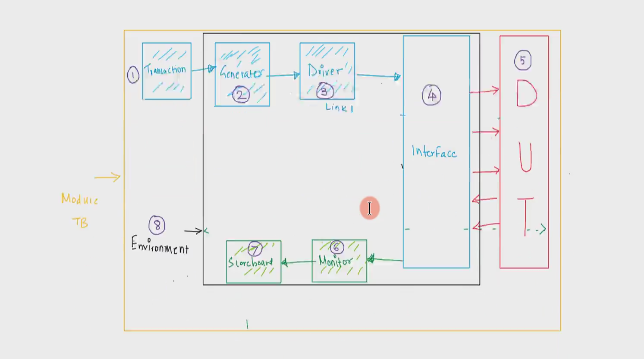 1
Transaction
Generator
2
Driver
3
Link1
4
Interface
5
D
U
T
Module
TB
8
Environment
7
Scoreboard
6
Monitor